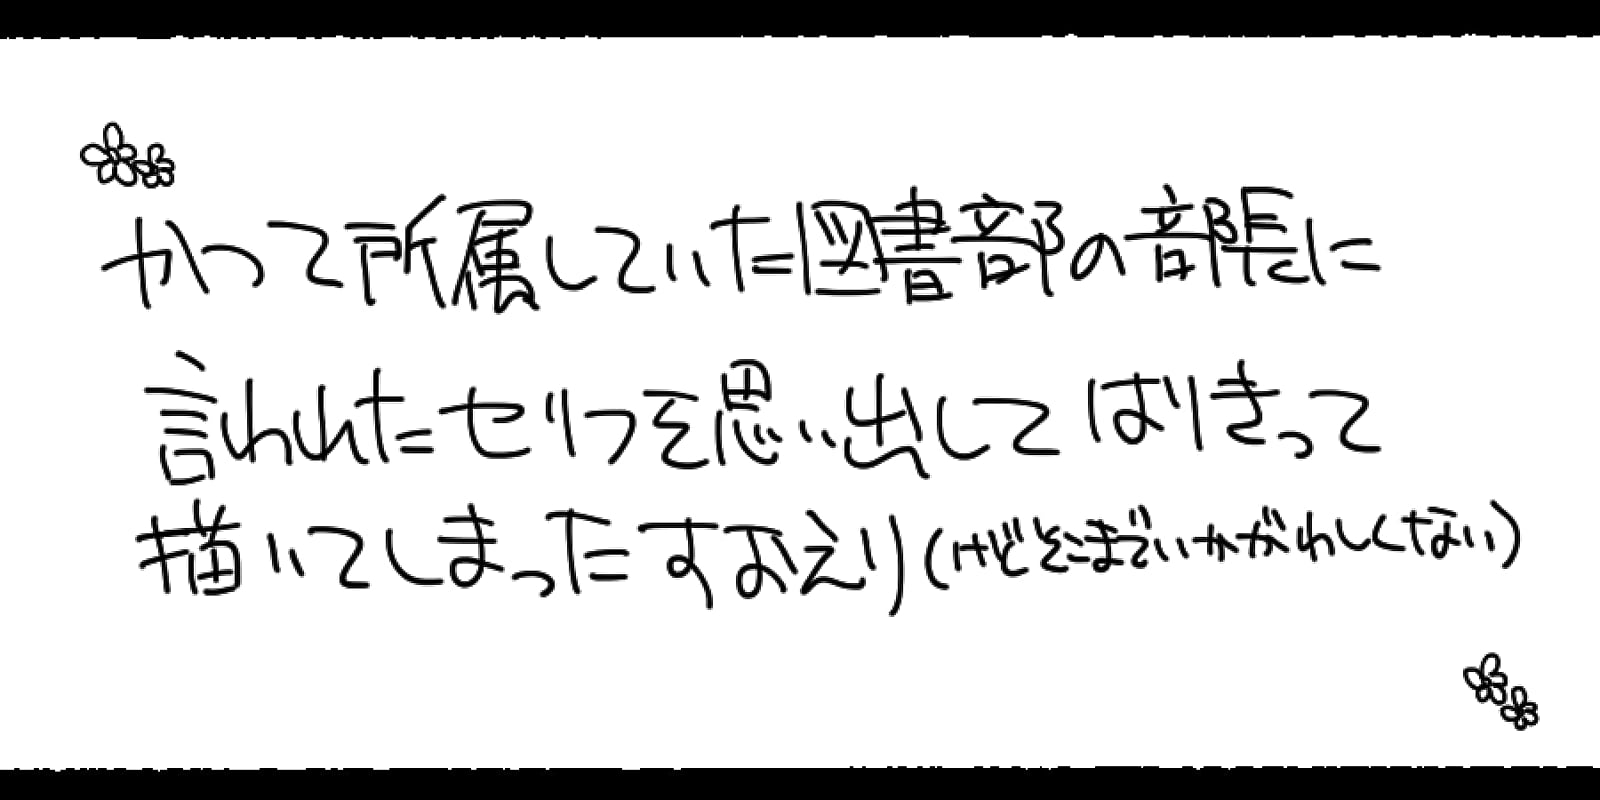 かつて所属していた図書部の部長に
言われたセリフを思い出してはりきって
描いてしまったすおえり(けどそこまでいかがわしくない)